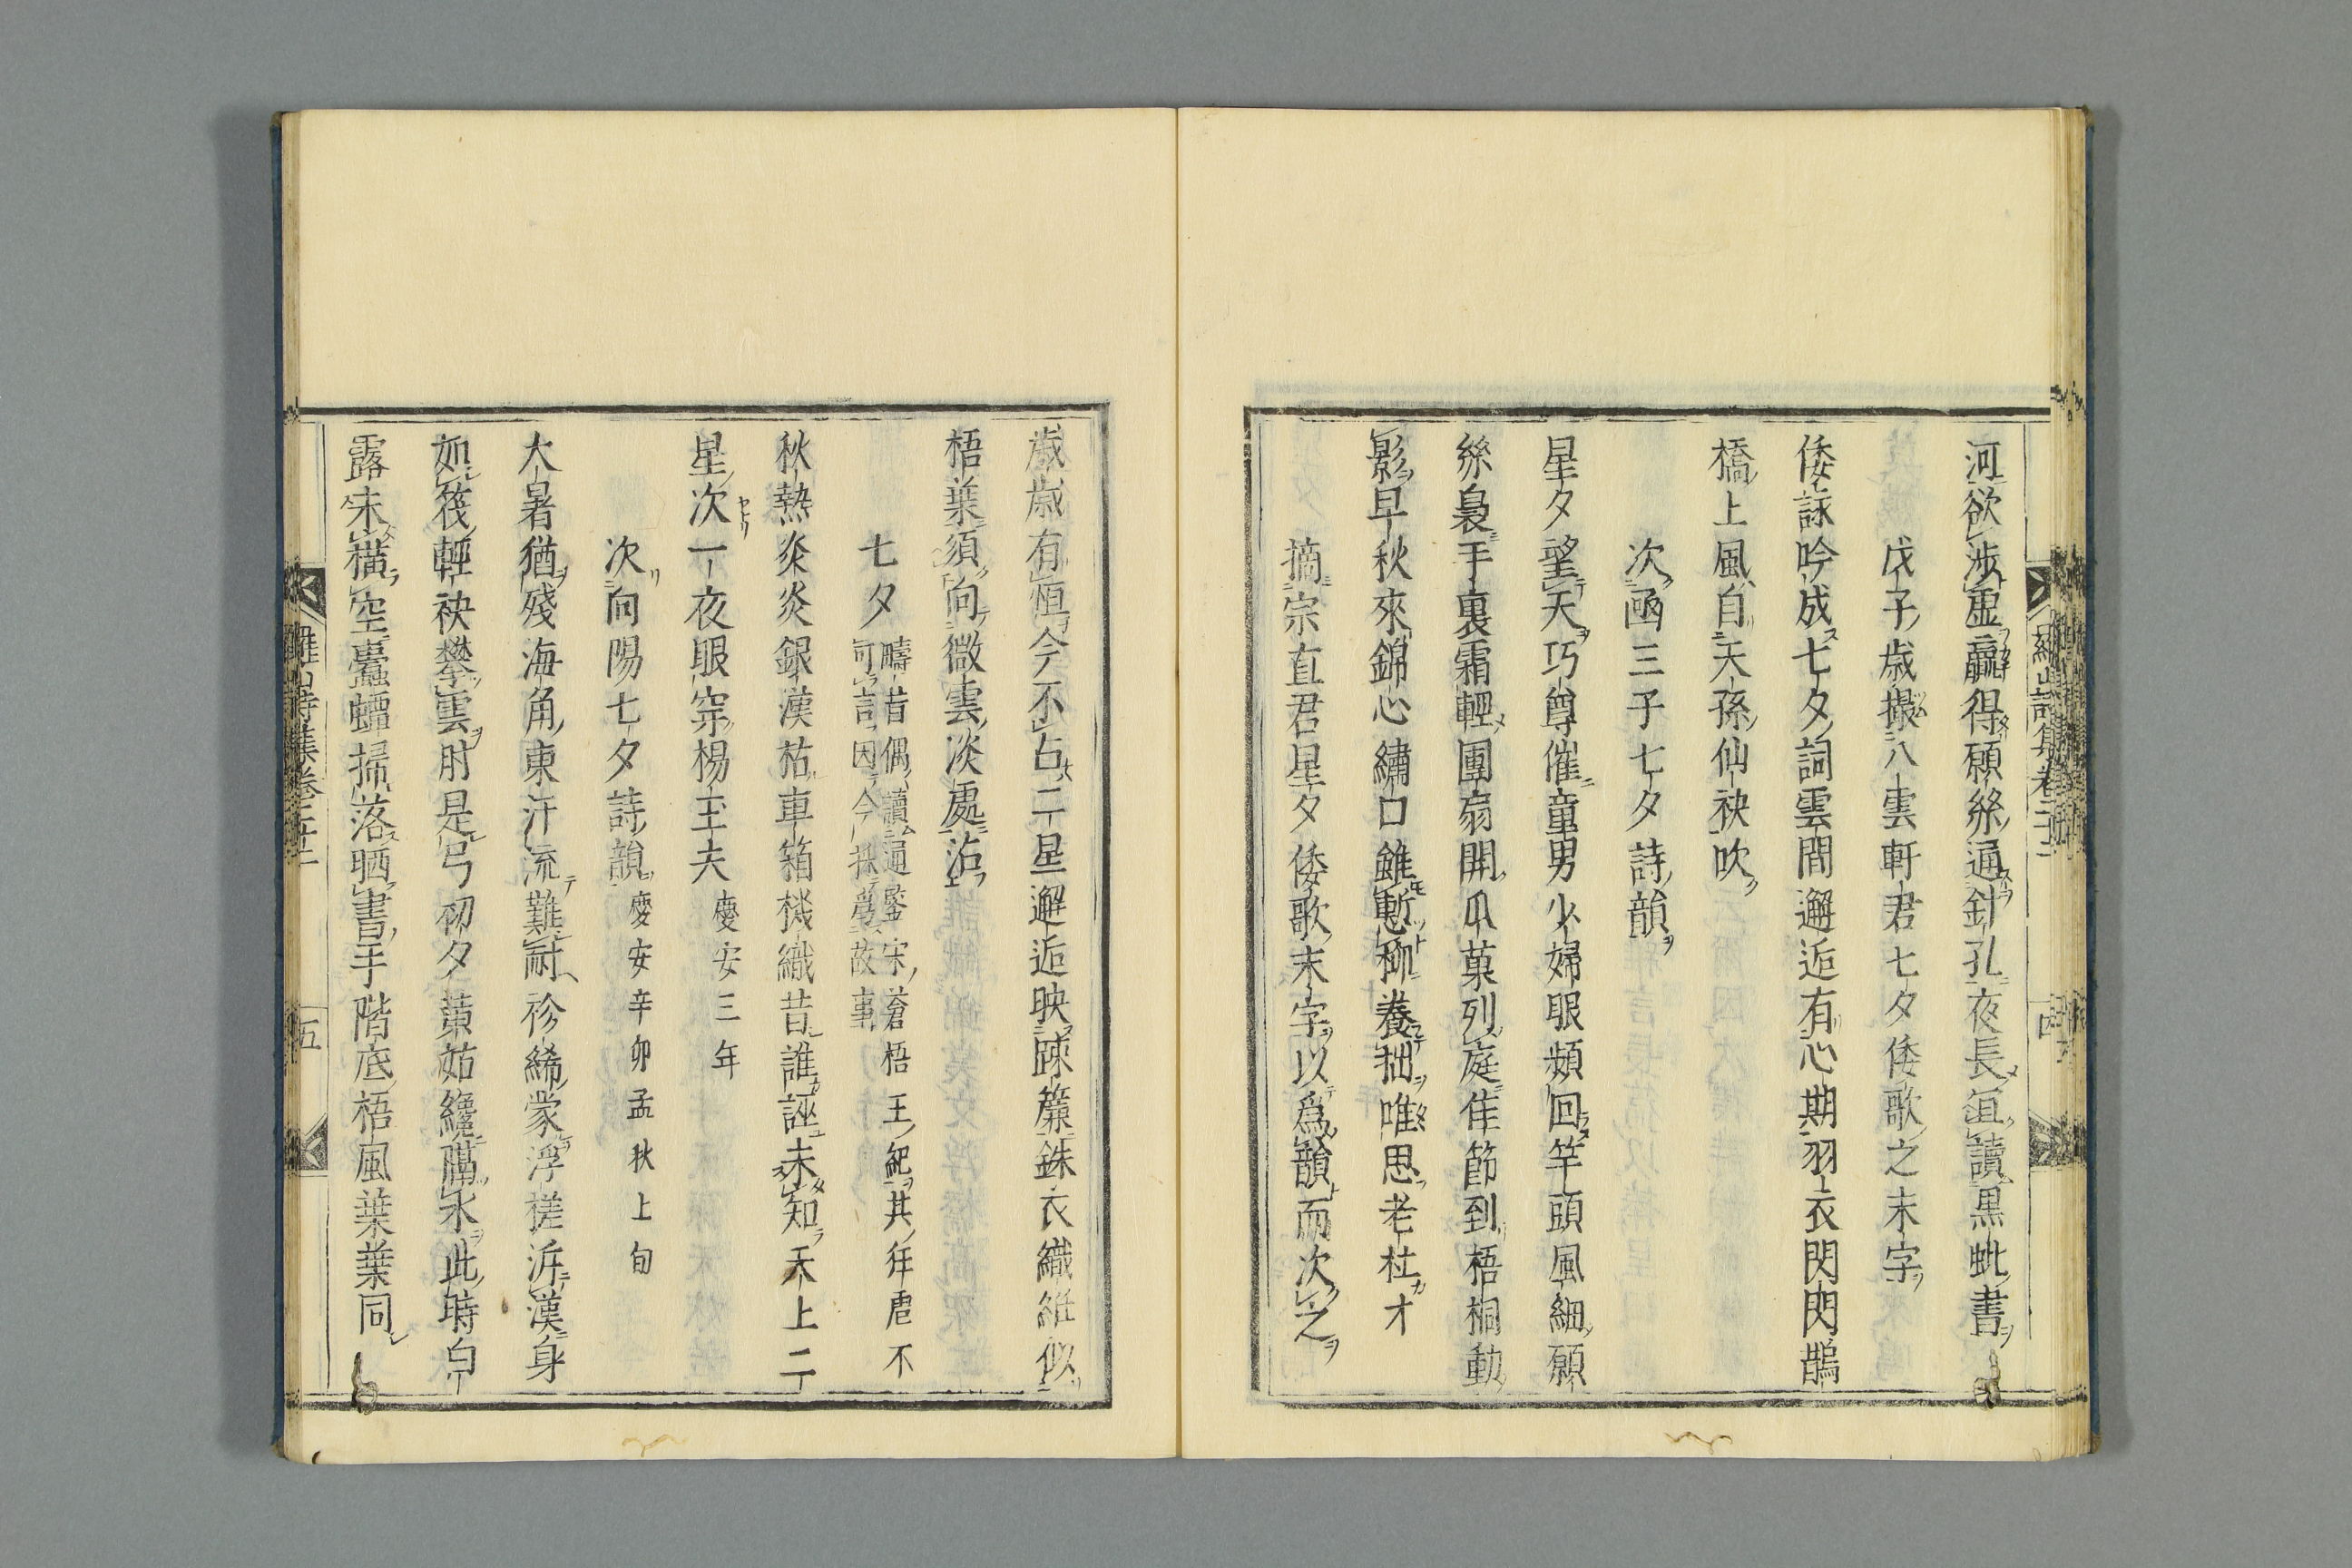 河欲渉虛贏得願絲通針孔夜長逭讀黒蚍書
戊子歳撮八雲軒君七夕倭歌之末字
倭詠吟成七夕詞雲間邂逅有心期羽衣閃閃鵲
橋上風自天孫仙袂吹
次凾三子七夕詩韻
星夕望天巧尊催童男少婦眼頻回竿頭風細願
絲裊手裏霜輕團扇開瓜菓列庭佳節到梧桐動
影早秋來錦心繡口雖慙柳養拙唯思老杜才
摘宗直君星夕倭歌末字以爲韻而次之
歳歳有恒今不占二星邂逅映踈簾銖衣織紝似
梧葉須向微雲淡處沾
七夕 疇昔偶讀通鑒宋蒼梧王紀其年虐不
可言因今採爲故事
秋熱炎炎銀漢枯車箱機織昔誰誣未知天上二
星次一夜眼穿楊玉夫 慶安三年
次向陽七夕詩韻 慶安辛卯孟秋上旬
大暑猶殘海角東汗流難耐袗絺蒙浮槎泝漢身
如筏輕袂攀雲肘是弓初夕黄姑纔隔水此時白
露未橫空蠹蟫掃落晒書手階底梧風葉葉同
羅山詩集卷三十二
五